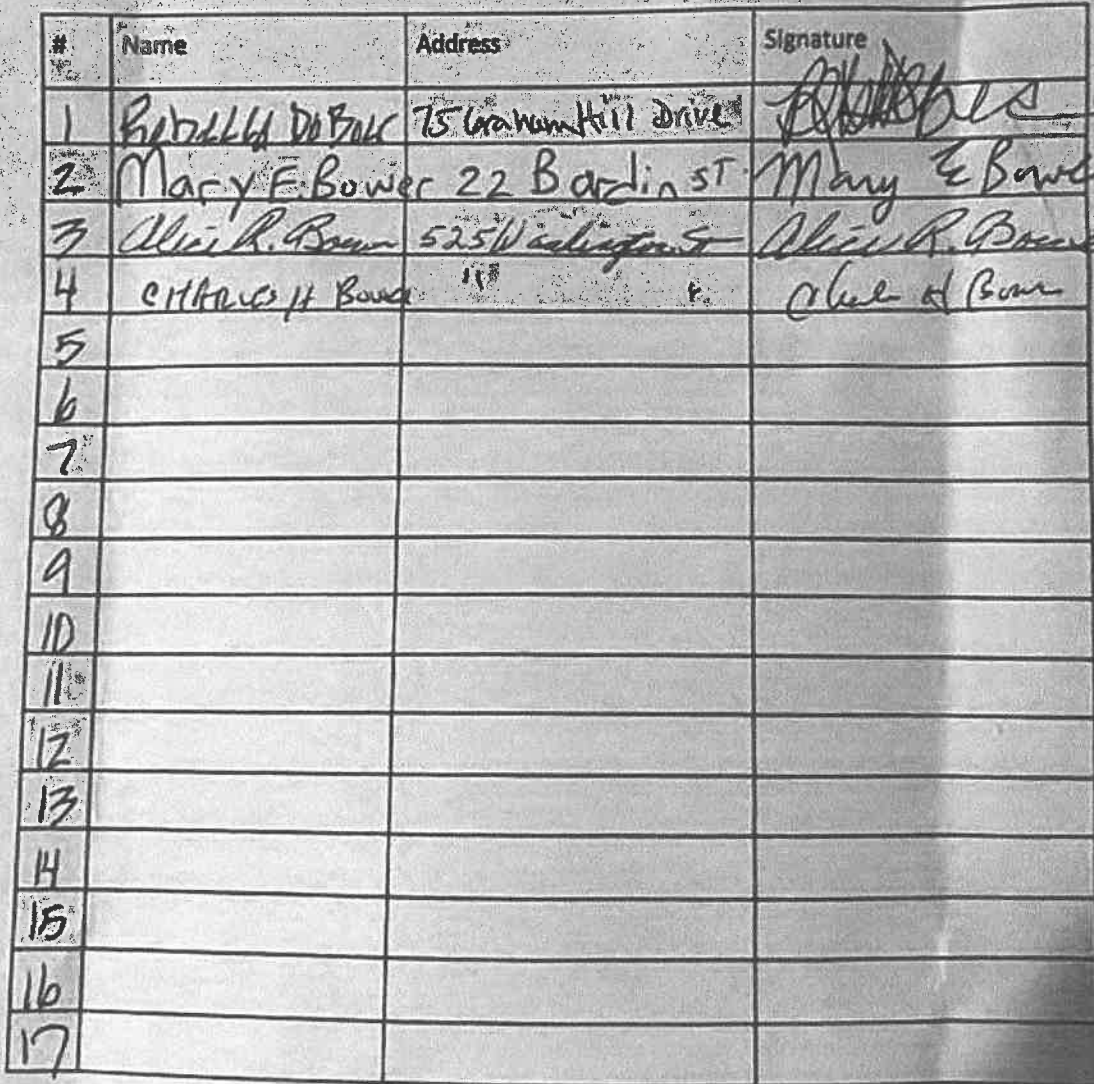 # Name Address Signature
1 DoBole 75 Graham Hill Drive
2 Mary E. Bower 22 Bardin ST Mary E Bowe
3 Alice R. 525 Washington St Alice R.
4 CHARLES H Bower " "
5
6
7
8
9
10
11
12
13
14
15
16
17